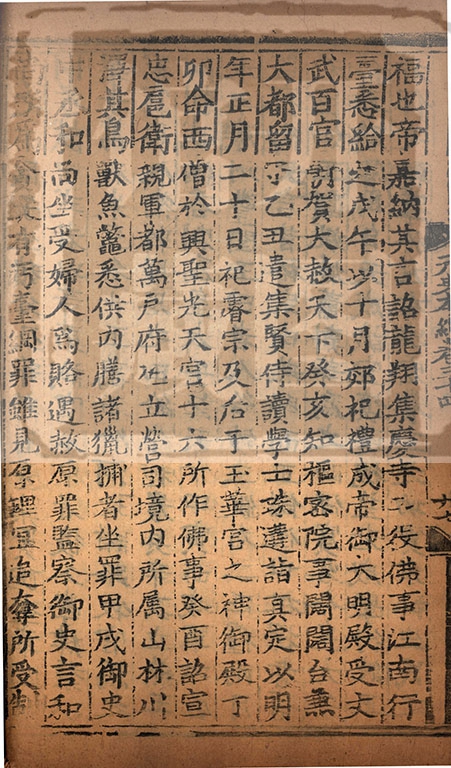 元史本紀卷三十四
十七
福也帝嘉納其言詔龍翔集慶寺工役佛事江南行
臺悉給之戊午以十月郊祀禮成帝御大明殿受文
武百官朝賀大赦天下癸亥知樞密院事闊闊台兼
大都留守乙丑遣集賢侍讀學士珠遘詣真定以明
年正月二十日祀睿宗及后于玉華宮之神御殿丁
卯命西僧於興聖光天宮十六所作佛事癸酉詔宣
忠扈衛親軍都萬戶府凡立營司境內所属山林川
澤其鳥獸魚鼈悉供內膳諸獵捕者坐罪甲戌御史
中丞和尚坐受婦人爲賂遇赦原罪監察御史言和
尚有污臺綱罪雖見原理宜追奪所受制